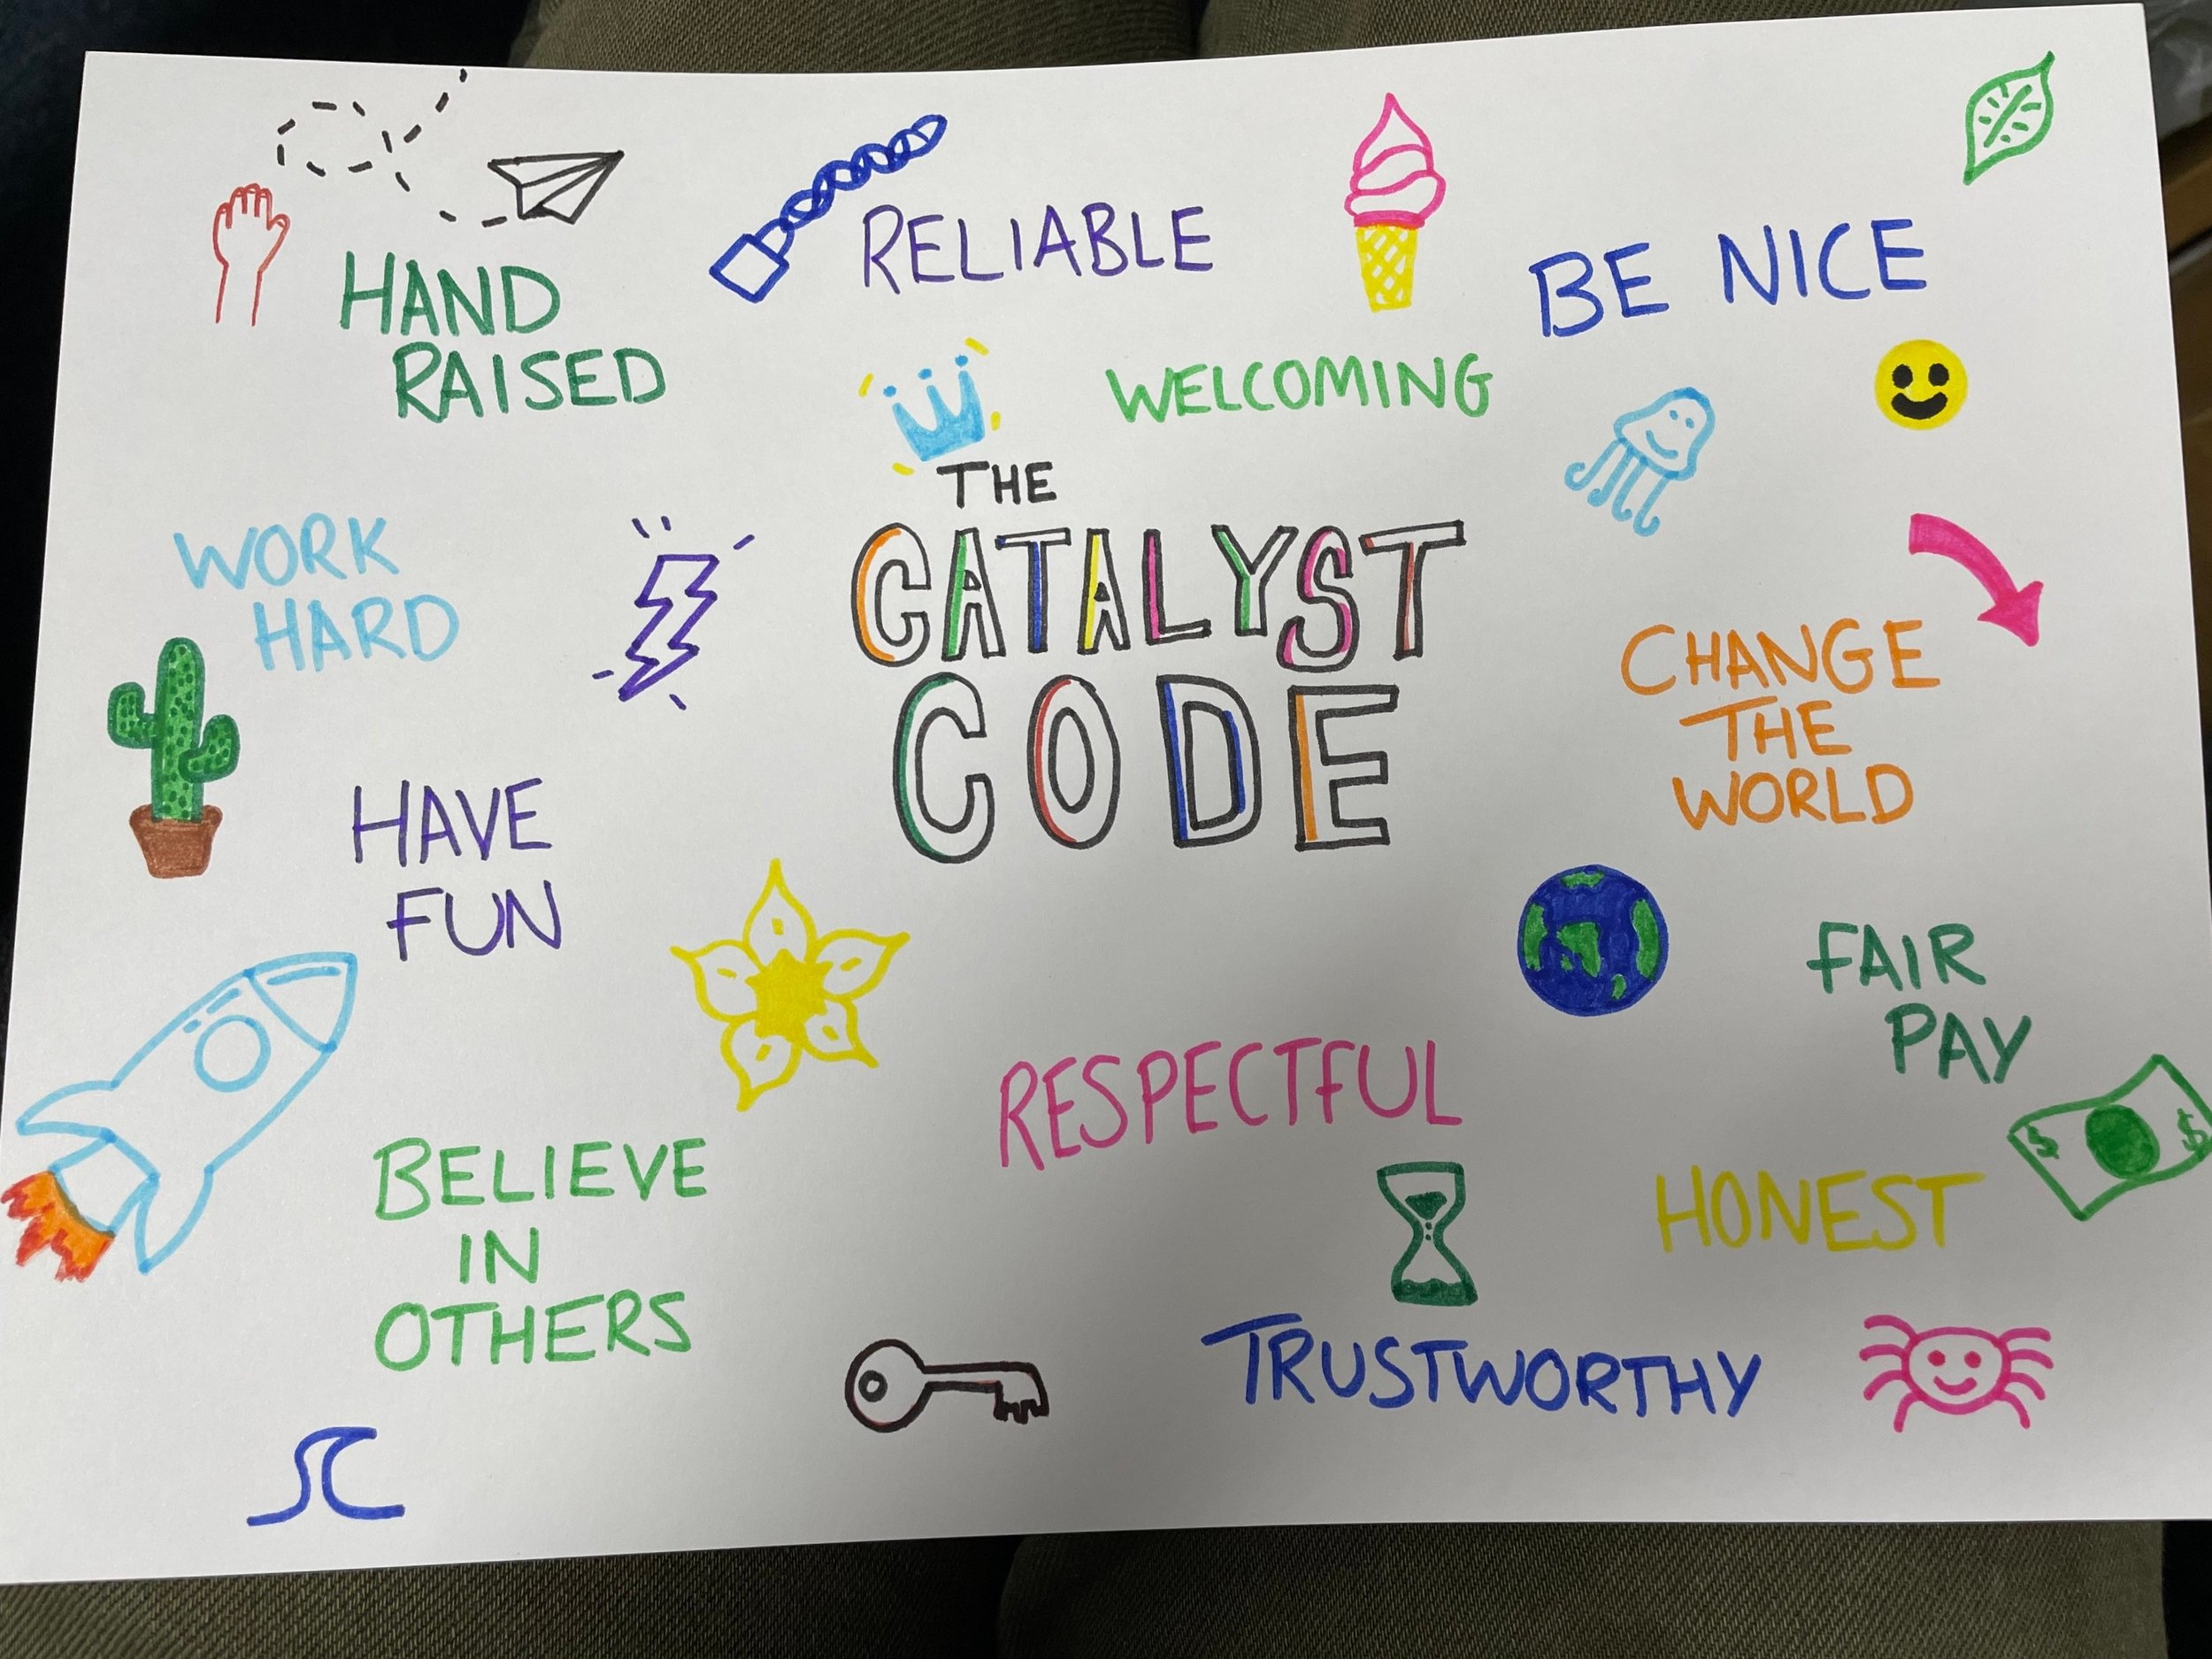 HAND
RAISED
RELIABLE
BE NICE
WELCOMING
THE
CATALYST
CODE
WORK
HARD
CHANGE
THE
WORLD
HAVE
FUN
FAIR
PAY
$ $
RESPECTFUL
BELIEVE
IN
OTHERS
HONEST
TRUSTWORTHY